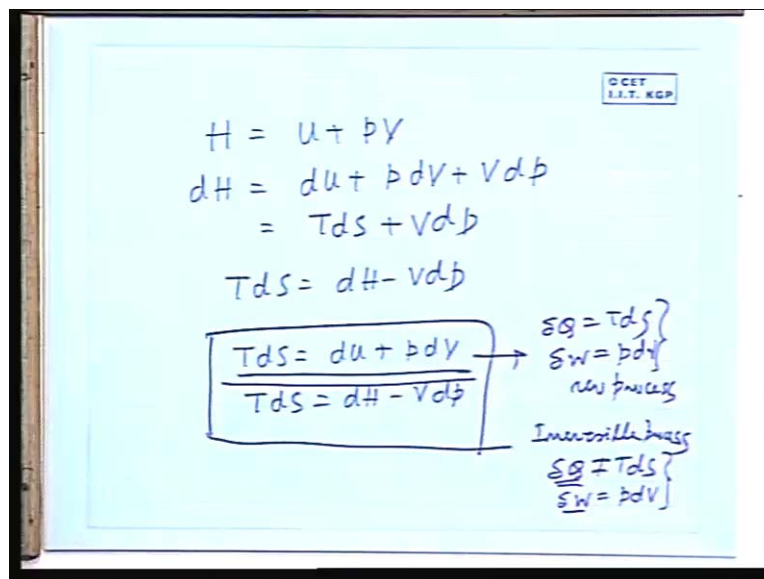 © CET
I.I.T. KGP
H = U + pV
dH = dU + pdV + Vdp
= TdS + Vdp
TdS = dH - Vdp
TdS = dU + pdV → δQ = TdS
δW = pdV
rev process
TdS = dH - Vdp
Irreversible process
δQ ≠ TdS
δW = pdV